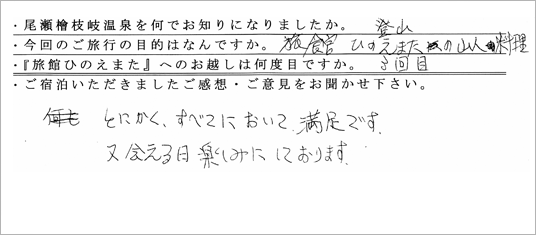 ・尾瀬檜枝岐温泉を何でお知りになりましたか。 登山
・今回のご旅行の目的はなんですか。 旅館ひのえまたの山人料理
・『旅館ひのえまた』へのお越しは何度目ですか。 3回目
・ご宿泊いただきましたご感想・ご意見をお聞かせ下さい。
とにかく、すべてにおいて、満足です。
又会える日楽しみにしております。